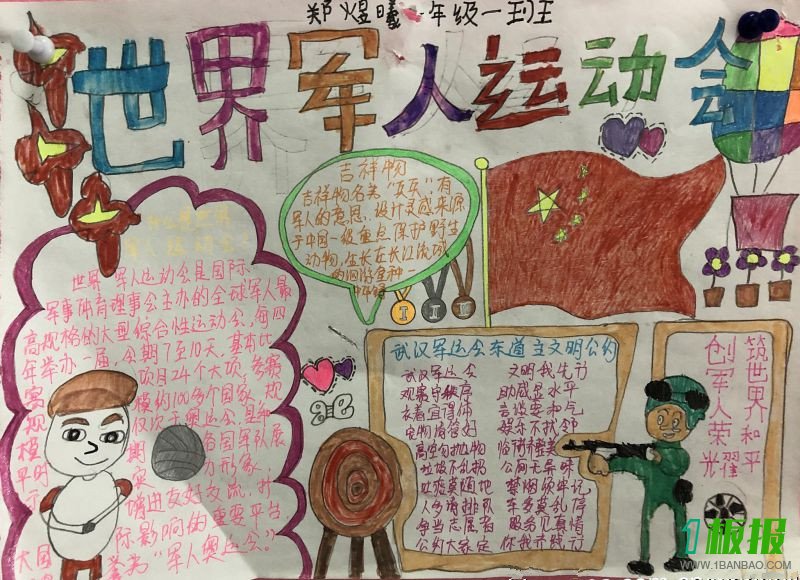 郑煜曦 一年级一班
世界军人运动会
吉祥物
吉祥物名为“兵兵”,有
军人的意思。设计灵感来源
于中国一级重点保护野生
动物,生长在长江流域
的洄游鱼种一
中华鲟
世界军人运动会是国际
军事体育理事会主办的全球军人最
高规格的大型综合性运动会,每四
年举办一届,会期7至10天,基本比
赛项目24个大项,参赛
规模约100多个国家,规
模仅次于奥运会,是和
平时期各国军队展
示
增进友好交流,扩
大国际影响的重要平台
誉为“军人奥运会。”
武汉军运会东道主文明公约
武汉军运会 文明我先行
观赛守秩序 助威显水平
衣着宜得体 言谈要和气
宠物请管好 娱乐不扰邻
高空勿抛物
垃圾不乱扔 公厕无异味
禁烟须牢记
人多请排队 车多莫乱停
争当志愿者 服务见真情
公约大家定 你我齐践行
筑世界和平
创军人荣光耀
1板报
WWW.1BANBAO.COM